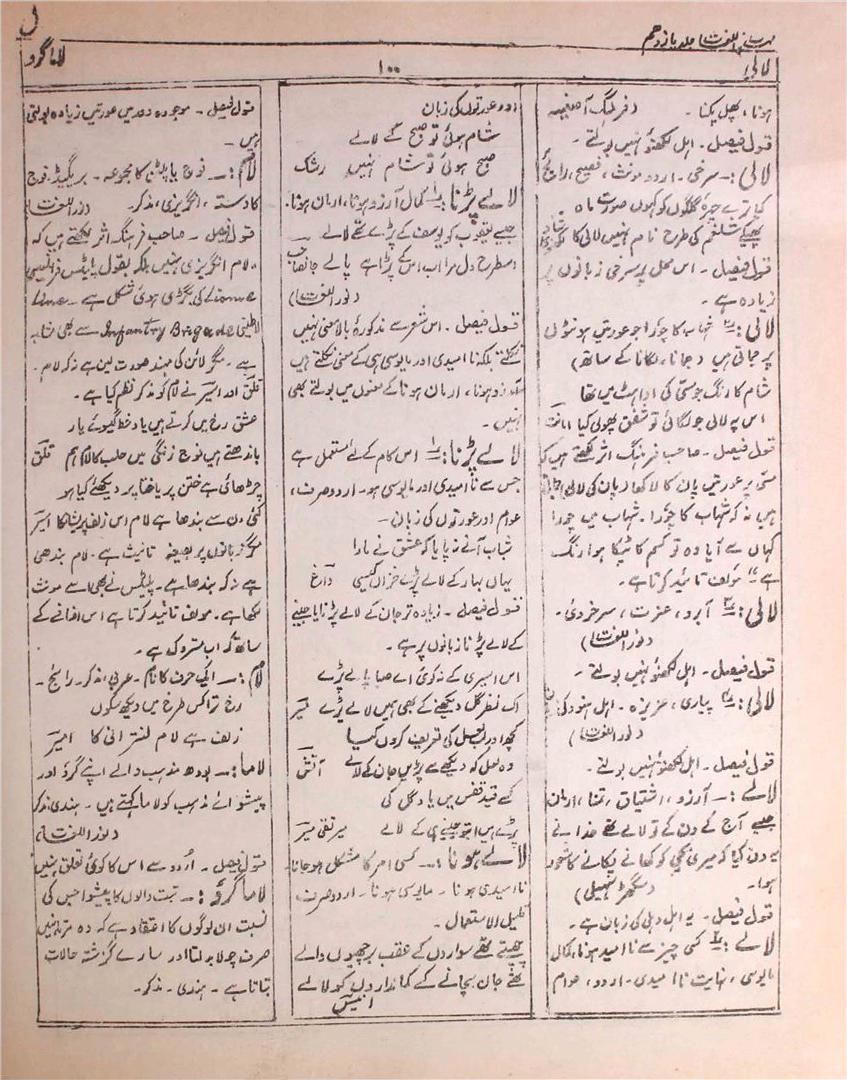 ل
مہذب اللغات جلد یازدہم
لالی
۱۰۰
لاما گرو
ہونا، پھل پکنا۔ (فرہنگ آصفیہ
قول فیصل۔ اہل لکھنؤ نہیں بولتے۔
لالی:۔ سرخی۔ اردو مونث، فصیح، رائج
کیا ترے چہرۂ گلگوں کو کہوں صورت ماہ
پھیکے شلغم کی طرح نام نہیں لالی کا
قول فیصل۔ اس محل پر سرخی زبانوں پر
زیادہ ہے۔
لالی:۲ شہاب کا چورا جو عورتیں ہونٹوں
پر جماتی ہیں (جمانا، لگانا کے ساتھ)
شام کا رنگ جو مسّی کی اداہٹ میں تھا
اس پہ لالی جو لگائی تو شفق پھولی کیا امانت
قول فیصل۔ صاحب فرہنگ اثر لکھتے ہیں کہ
مسّی پر عورتیں پان کا لاکھا زبان کی لالی
ہیں نہ کہ شہاب کا چورا۔ شہاب میں چورا
کہاں سے آیا وہ تو کسم کا ٹپکا ہوا رنگ
ہے" مؤلف تائید کرتا ہے۔
لالی:۳ آبرو، عزت، سرخروئی۔
(نوراللغات)
قول فیصل۔ اہل لکھنؤ نہیں بولتے۔
لالی:۴ پیاری، عزیزہ۔ اہل ہنود کی
(نوراللغات)
قول فیصل۔ اہل لکھنؤ نہیں بولتے۔
لالے:۔ آرزو، اشتیاق، تمنا، ارمان
جیسے آج کے دن کے تو لالے تھے خدا نے
یہ دن کیا کہ میری بچی کو کھانے پکانے کا شعور
ہوا۔ (سگھڑ سہیلی)
قول فیصل۔ یہ اہل دہلی کی زبان ہے۔
لالے:۲ کسی چیز سے ناامید ہونا، کمال
مایوسی، نہایت ناامیدی۔ اردو، عوام
اور عورتوں کی زبان
شام ہوئی تو صبح کے لالے
صبح ہوئی تو شام نہیں رشک
لالے پڑنا:۱ کمال آرزو ہونا، ارمان ہونا۔
جیسے یعقوب کو یوسف کے پڑے تھے لالے
اسطرح دل مرا اب اس کے پڑا ہے پالے جانصاحب
(نوراللغات)
قول فیصل۔ اس شعر سے مذکورۂ بالا معنی نہیں
نکلتے بلکہ ناامیدی اور مایوسی ہی کے معنی نکلتے ہیں
آرزو ہونا، ارمان ہونا کے معنوں میں بولتے بھی
نہیں۔
لالے پڑنا:۲ اس کام کے لئے مستعمل ہے
جس سے ناامیدی اور مایوسی ہو۔ اردو صرف،
عوام اور عورتوں کی زبان۔
شباب آنے نہ پایا کہ عشق نے مارا
یہاں بہار کے لالے پڑے خزاں کیسی داغ
قول فیصل۔ زیادہ تر جان کے لالے پڑنا یا جینے
کے لالے پڑنا زبانوں پر ہے۔
اس اسیری کے نہ کوئی اے صبا پالے پڑے
اک نظر گل دیکھنے کے بھی ہمیں لالے پڑے میر
کچھ اور لب لعل کی تعریف کروں کیا
وہ لعل کہ دیکھے سے پڑیں جان کے لالے آتش
کے قید قفس میں یاد گل کی
پڑے ہیں اب تو جینے ہی کے لالے میر تقی میر
لالے ہونا:۔ کسی امر کا مشکل ہو جانا
ناامیدی ہونا۔ مایوسی ہونا۔ اردو صرف،
قلیل الاستعمال۔
چھپتے تھے سواروں کے عقب برچھیوں والے
تھے جان بچانے کے کمانداروں کو لالے
انیس
قول فیصل۔ موجودہ دور میں عورتیں زیادہ بولتی
ہیں۔
لام:۔ فوج یا پلٹن کا مجموعہ۔ بریگیڈ، فوج
کا دستہ، انگریزی، مذکر۔ (نوراللغات)
قول فیصل۔ صاحب فرہنگ اثر لکھتے ہیں کہ
"لام انگریزی نہیں بلکہ بقول پلیٹس فرانسیسی
Lionne کی بگڑی ہوئی شکل ہے۔ Line
لاطینی Infantry Brigade سے بھی مشابہ
ہے۔ مگر لائن کی مہند صورت لین ہے نہ کہ لام۔
قلق اور اسیر نے لام کو مذکر نظم کیا ہے۔
عشق رخ میں کرتے ہیں یاد خط گیسوئے یار
باندھتے ہیں فوج زنگی میں حلب کا لام ہم قلق
چڑھائی ہے ختن پر یا خطا پر دیکھئے کیا ہو
کئی دن سے بندھا ہے لام اس زلف پریشاں کا اسیر
مگر زبانوں پر بصیغہ تانیث ہے۔ لام بندھی
ہے نہ کہ بندھا ہے۔ پلیٹس نے بھی اسے مونث
لکھا ہے۔ مولف تائید کرتا ہے اس اضافے کے
ساتھ کہ اب متروک ہے۔
لام:۔ ایک حرف کا نام۔ عربی، مذکر۔ رائج۔
رخ ترا کس طرح میں دیکھ سکوں
زلف ہے لام لنترانی کا امیر
لاما:۔ بودھ مذہب والے اپنے گرو اور
پیشوائے مذہب کو لاما کہتے ہیں۔ ہندی، مذکر
(نوراللغات)
قول فیصل۔ اُردو سے اس کا کوئی تعلق نہیں
لاما گرو:۔ تبت والوں کا پیشوا جس کی
نسبت ان لوگوں کا اعتقاد ہے کہ وہ مرتا نہیں
صرف چولا بدلتا اور سارے گزشتہ حالات
بتاتا ہے۔ ہندی۔ مذکر۔